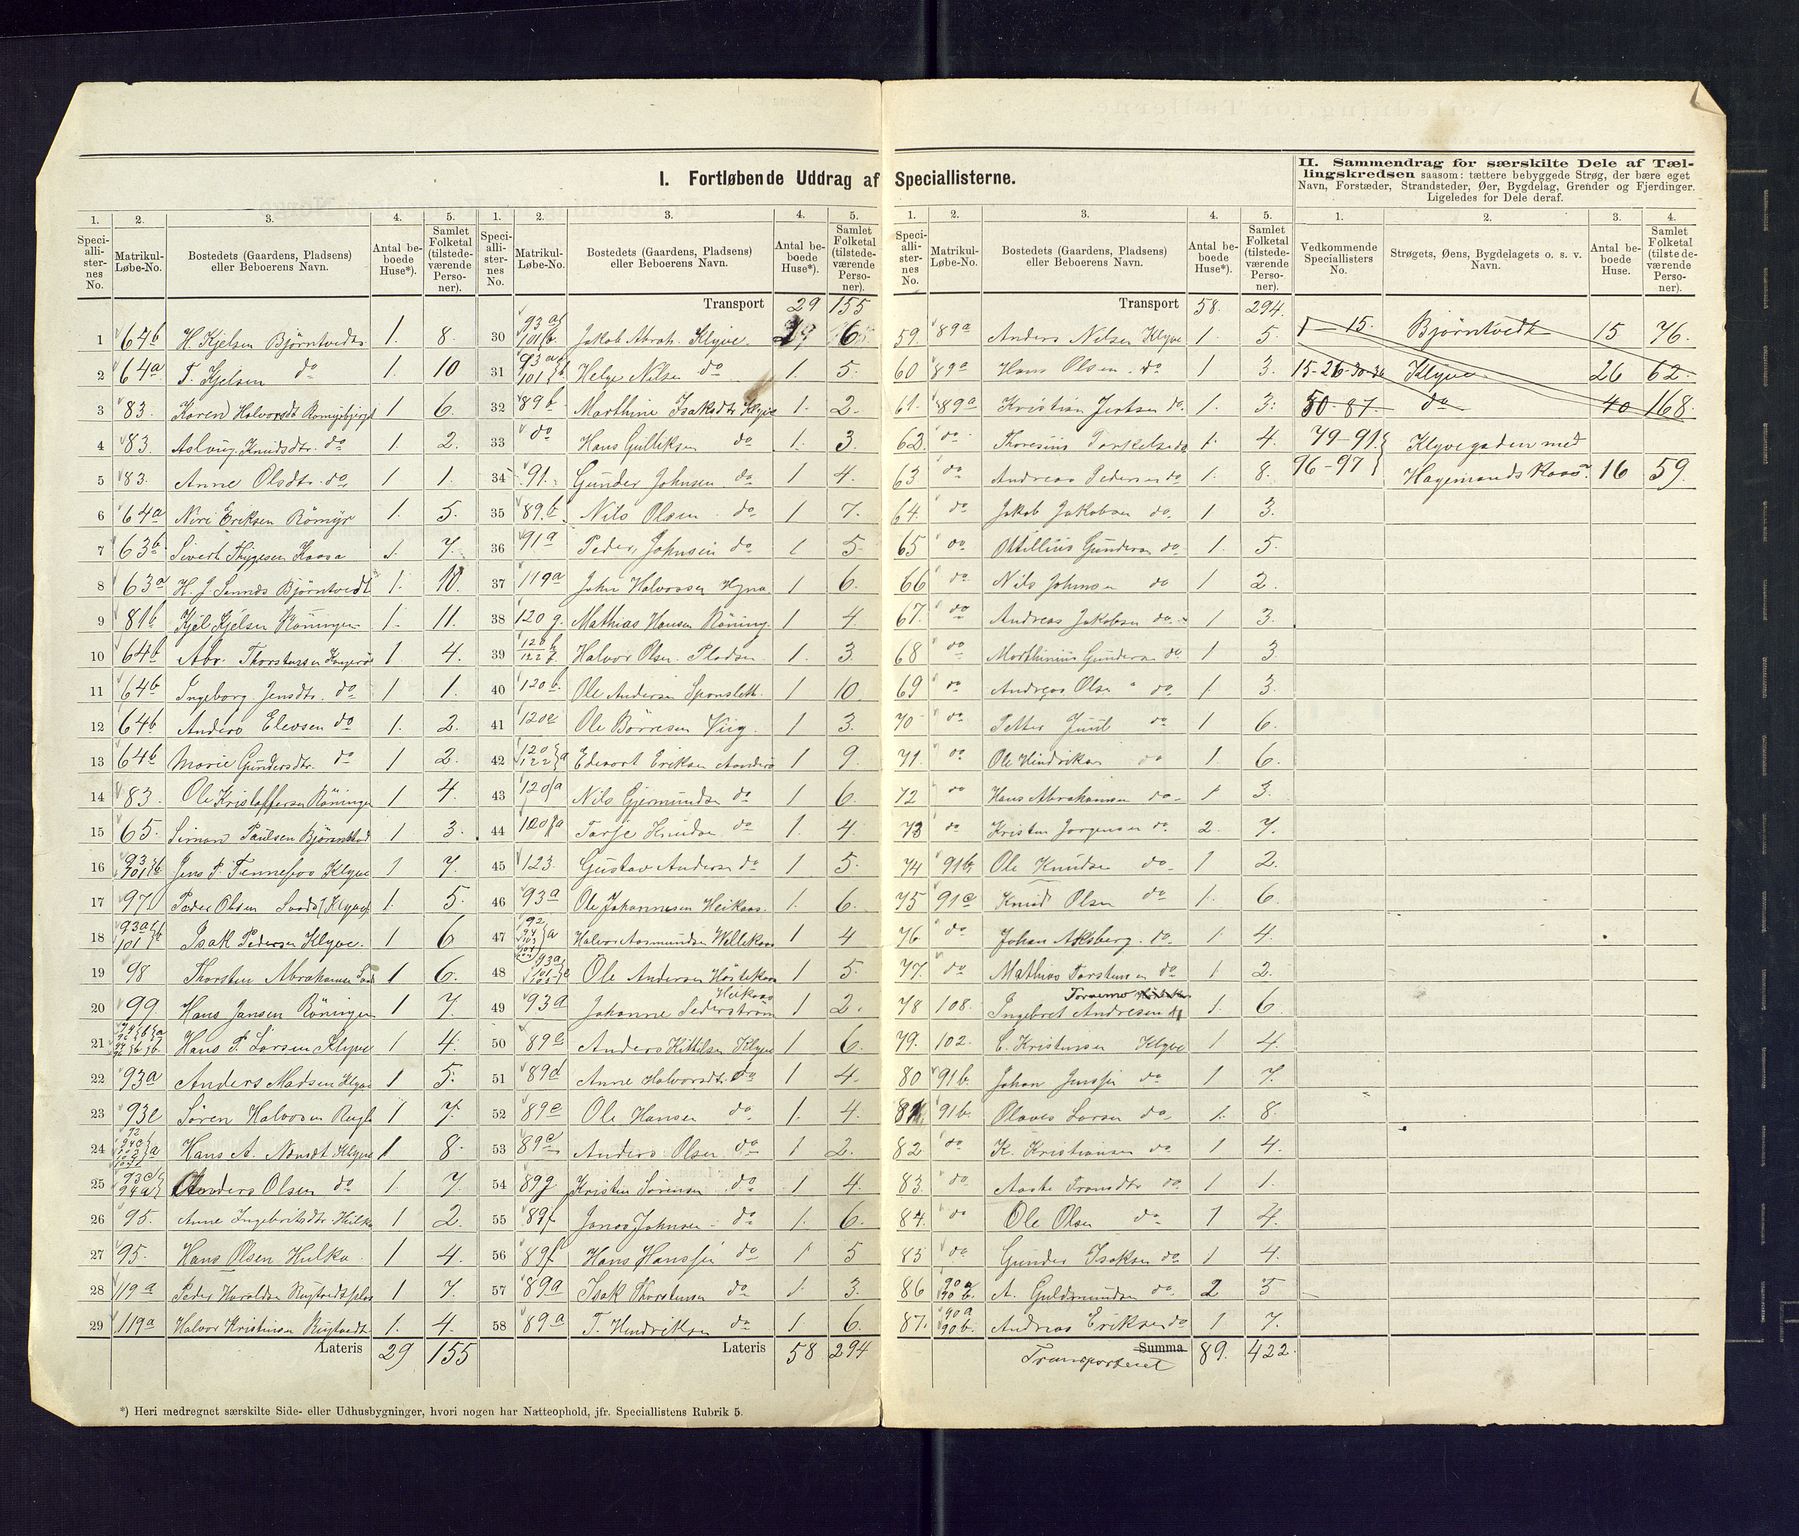 I. Fortløbende Uddrag af Speciallisterne.
II. Sammendrag for særskilte Dele af Tællingskredsen saasom: tættere bebyggede Strøg, der bære eget
Navn, Forstæder, Strandsteder, Øer, Bygdelag, Grender og Fjerdinger.
Ligeledes for Dele deraf.
1. 2. 3. 4. 5.
Speciallisternes No. Matrikul-Løbe-No. Bostedets (Gaardens, Pladsens) eller Beboerens Navn. Antal beboede Huse*). Samlet Folketal (tilstedeværende Personer).
1 64b H. Kjelsen Björntvedt 1. 8.
2 64a T. Kjelsen do 1. 10
3 83. Karen Halvorsdt 1 6.
4 83. Aslaug Knudsdtr. do 1 2.
5 83. Anne Olsdtr. do 1 1.
6 64a Neri Eriksen Römyr 1. 5.
7 63b Sivert Thygesen Kaasa 1. 7.
8 63a H. J. Björntvedt 1. 10.
9 81b Kjel Kjelsen Röningen 1. 11.
10 64b Abr. Thorstensen 1 4.
11 64b Ingeborg Jensdtr. do 1 1.
12 64b Anders Elevsen do 1. 2.
13 64b Marie Gundersdtr. do 1 2.
14 83. Ole Kristoffersen Röningen 1 4.
15 65. Simon Paulsen 1 3.
16 93 101 b Jens P. Tennefos Klyve 1 7.
17 97 Peder Olsen Klyve 1. 5.
18 93a 101 b Isak Pedersen Klyve. 1 6
19 98 Thorsten Abrahamsen 1 6.
20 99 Hans Jansen Röningen 1 7.
21 Hans P. Larsen Klyve 1 4.
22 93a Anders Madsen Klyve 1 5.
23 93e Sören Halvorsen 1 7.
24 Hans A. Klyve 1 8.
25 93c 94a Anders Olsen do 1. 7.
26 95. Anne Ingebritsdtr 1 2.
27 95. Hans Olsen Hulka 1 4.
28 119a Peder Haraldsen 1 7.
29 119a Halvor Kristensen 1. 4.
Lateris 29 155
1. 2. 3. 4. 5.
Speciallisternes No. Matrikul-Løbe-No. Bostedets (Gaardens, Pladsens) eller Beboerens Navn. Antal beboede Huse*). Samlet Folketal (tilstedeværende Personer).
Transport 29 155
30 93a 101 b Jakob Abrah. Klyve. 6
31 93a 101 b Helge Nilsen do 1. 5.
32 89b Marthine Isaksdtr Klyve 1. 2.
33 do Hans Gulliksen do 1. 3.
34 91. Gunder Johnsen do 1 4.
35 89.b. Nils Olsen do 1 7.
36 91a Peder Johnsen do 1 5.
37 119a John Halvorsen 1 6.
38 120g. Mathias Hansen Röning. 1 4
39 Halvor Olsen Pladsen 1. 3.
40 120b. Ole Andersen 1 10.
41 120e Ole Börresen Viig 1 3.
42 120 122 a Edevart Eriksen 1 9.
43 120 a Nils Gjermundsen do 1 6.
44 120 a Tarje Knudsen do 1. 4.
45 123. Gustav Anders do 1 5.
46 93a Ole Johannesen Heikaas. 1. 6.
47 Halvor Aasmundsen 1 4
48 Ole Andersen 1 5.
49 93a Johanne Pederström Heikaas 1 2.
50 89c Anders Kittilsen Klyve 1 6.
51 89d Anne Halvorsdtr. do 1 4.
52 89e Ole Hansen do 1. 4.
53 89e Anders Olsen do 1 2.
54 89g. Kristen Sörensen do 1 4.
55 89f Jonas Johnsen do 1. 6.
56 89f Hans Hanssen do 1 5
57 89a Isak Thorstensen do 1. 3.
58 89a T. Hendriksen do 1. 6.
Lateris 58 294
1. 2. 3. 4. 5.
Speciallisternes No. Matrikul-Løbe-No. Bostedets (Gaardens, Pladsens) eller Beboerens Navn. Antal beboede Huse*). Samlet Folketal (tilstedeværende Personer).
Transport 58. 294.
59. 89a Anders Nilsen Klyve 1 5.
60 89a Hans Olsen do 1 3.
61. 89a Kristian Jertsen do. 1. 3.
62. do Thoresius Torkelsen do 1. 4.
63 do Andreas Pedersen do 1. 8.
64. do Jakob Jakobsen do. 1 3.
65 do Ottillius Gundersen do 1. 5.
66 do Nils Johnsen do 1 2.
67. do Andreas Jakobsen do. 1 3.
68 do Marthinius Gundersen do 1 3.
69 do Andreas Olsen do. 1. 3.
70 do Petter Juul do 1 6.
71. do Ole Hindriksen do 1. 6.
72 do Hans Abrahamsen do 1 3.
73 do Kristen Jorgensen do 2. 7.
74 91b Ole Knudsen do 1 2.
75 91c Knud Olsen do 1 6.
76 do Johan Aksberg. do. 1. 4.
77. do Mathias Torstensen do 1 2.
78 108. Ingebret Andresen 1. 6
79. 102. C. Kristensen Klyve 1 4.
80 91b. Johan Jenssen do 1 7.
81. 91b. Olaves Larsen do 1. 8.
82 do K. Kristiansen do 1 4.
83. do Aaste do. 1 1.
84. do Ole Olsen do 1 4.
85 do Gunder Isaksen do 1 4.
86 90a 90b. A. Guldmundsen do 2 5
87. 90a 90b. Andreas Eriksen do 1 7.
Summa Transporteret 89. 422.
1. 2. 3. 4.
Vedkommende Speciallisters No. Strøgets, Øens, Bygdelagets o. s. v. Navn. Antal beboede Huse. Samlet Folketal (tilstedeværende Personer).
1 - 15. Björntvedt 15 76.
15-26-30-36 Klyve 26 62.
50-87. do 40 168.
79-91 96-97 Klyvegaden med
Hagemandskaas 16 59.
*) Heri medregnet særskilte Side- eller Udhusbygninger, hvori nogen har Natteophold, jfr. Speciallistens Rubrik 5.